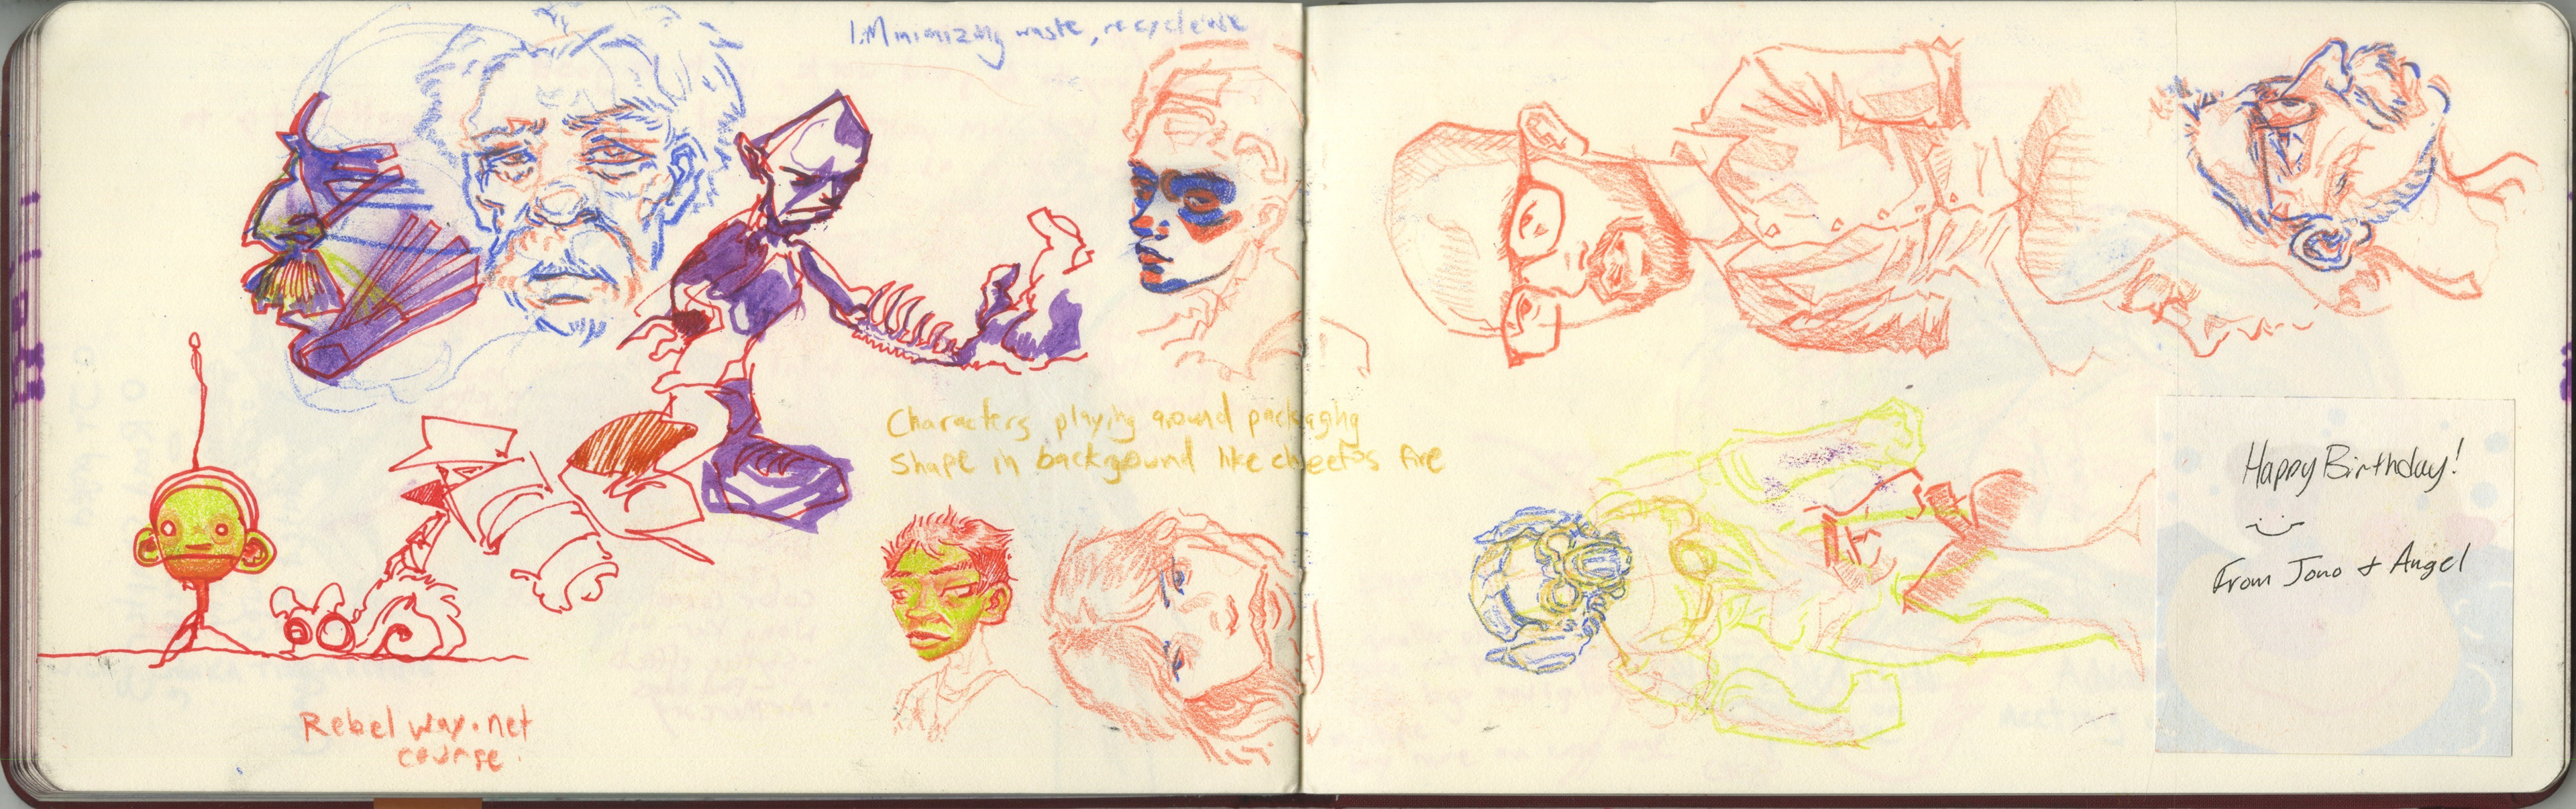 1. Minimizing waste, recycleable
Characters playing around packaging
shape in background like cheetos are
Rebel way.net
course.
Happy Birthday!
From Jono & Angel